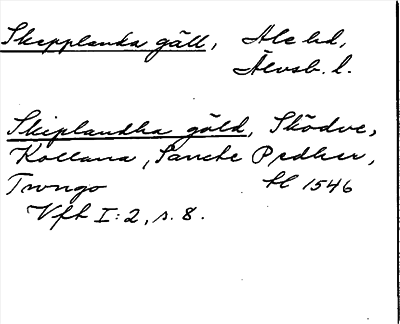 Skepplanda gäll, Ale hd,
Älvsb. l.
Skiplandha gäld, Sködve,
Kollana, Sancte Pedher,
Twngo hl 1546
Vft I:2, s. 8.